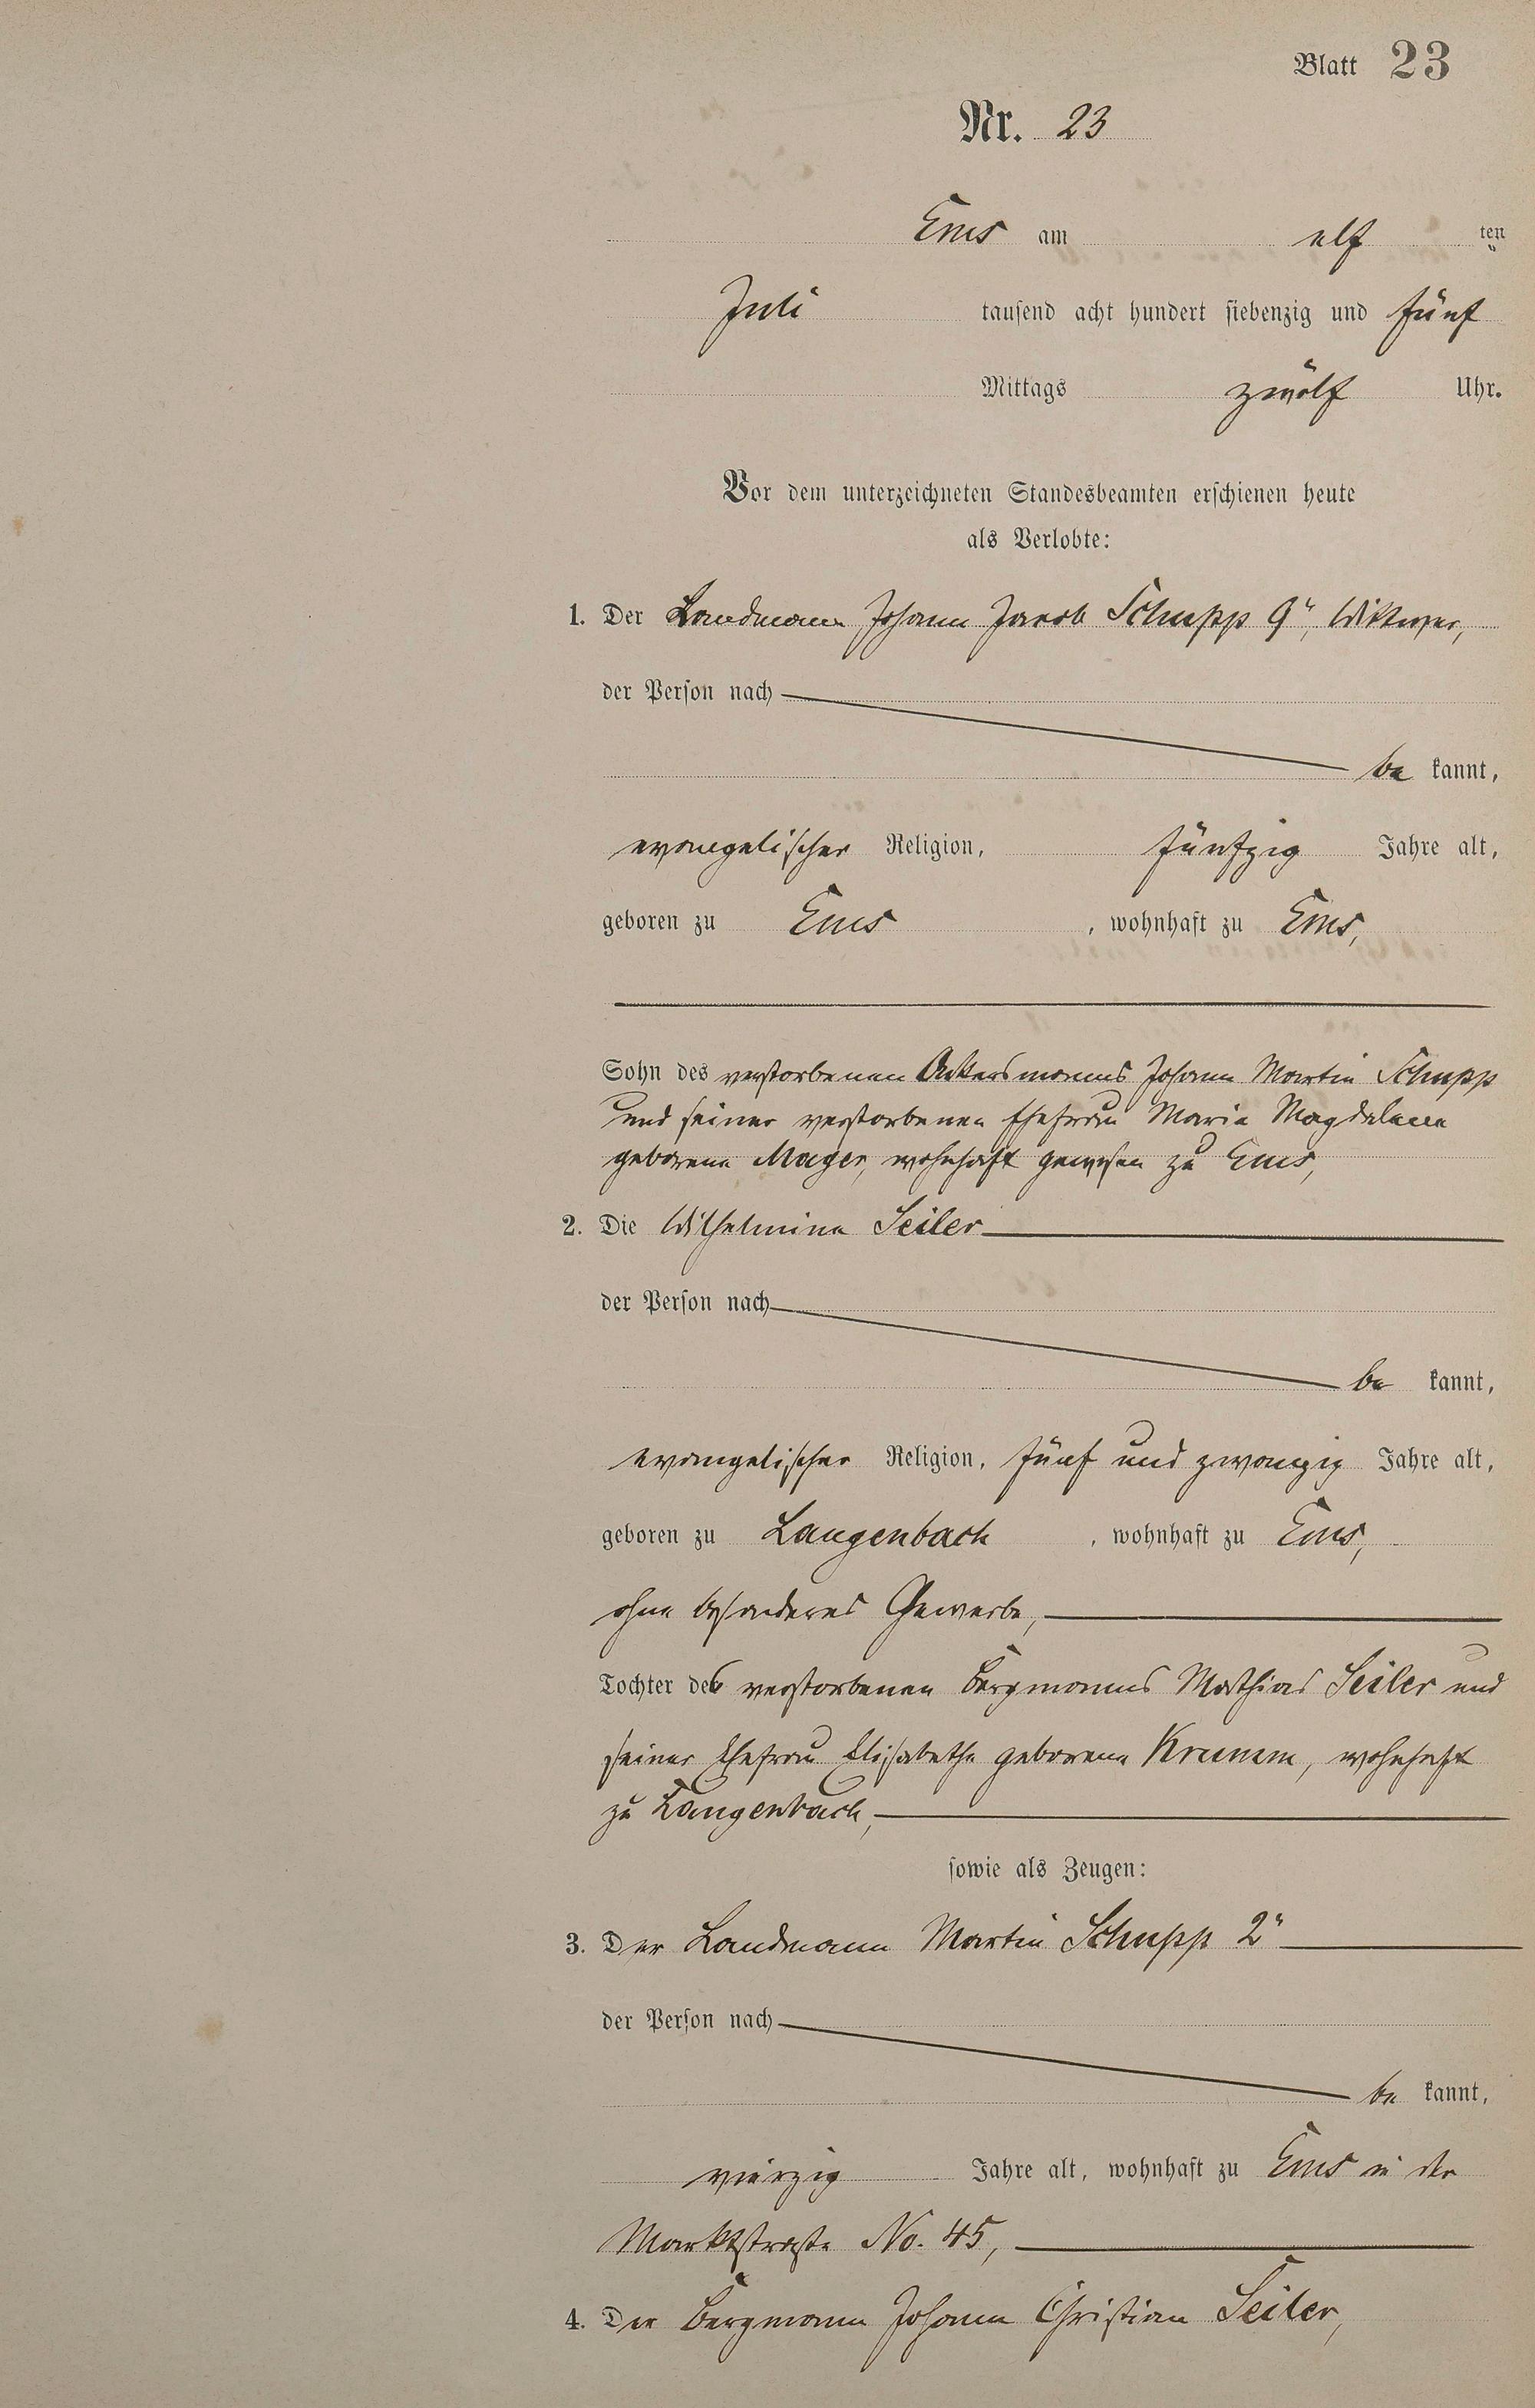 Blatt 23
Nr. 23
Ems am elf ten
Juli tausend acht hundert siebenzig und fünf
Mittags zwölf Uhr.
Vor dem unterzeichneten Standesbeamten erschienen heute
als Verlobte:
1. Der Landmann Johann Jacob Schupp 9r, Wittwer,
der Person nach
be kannt,
evangelischer Religion, fünfzig Jahre alt,
geboren zu Ems, wohnhaft zu Ems,
Sohn des verstorbenen Ackersmanns Johann Martin Schupp
und seiner verstorbenen Ehefrau Maria Magdalena
geborene Mager, wohnhaft gewesen zu Ems,
2. Die Wilhelmina Seiler
der Person nach
be kannt,
evangelischer Religion, fünf und zwanzig Jahre alt,
geboren zu Langenbach, wohnhaft zu Ems,
ohne besonderes Gewerbe,
Tochter des verstorbenen Bergmanns Mathias Seiler und
seiner Ehefrau Elisabetha geborene Krumm, wohnhaft
zu Langenbach,
sowie als Zeugen:
3. Der Landmann Martin Schupp 2r
der Person nach
be kannt,
vierzig Jahre alt, wohnhaft zu Ems in der
Marktstraße No. 45,
4. Der Bergmann Johann Christian Seiler,